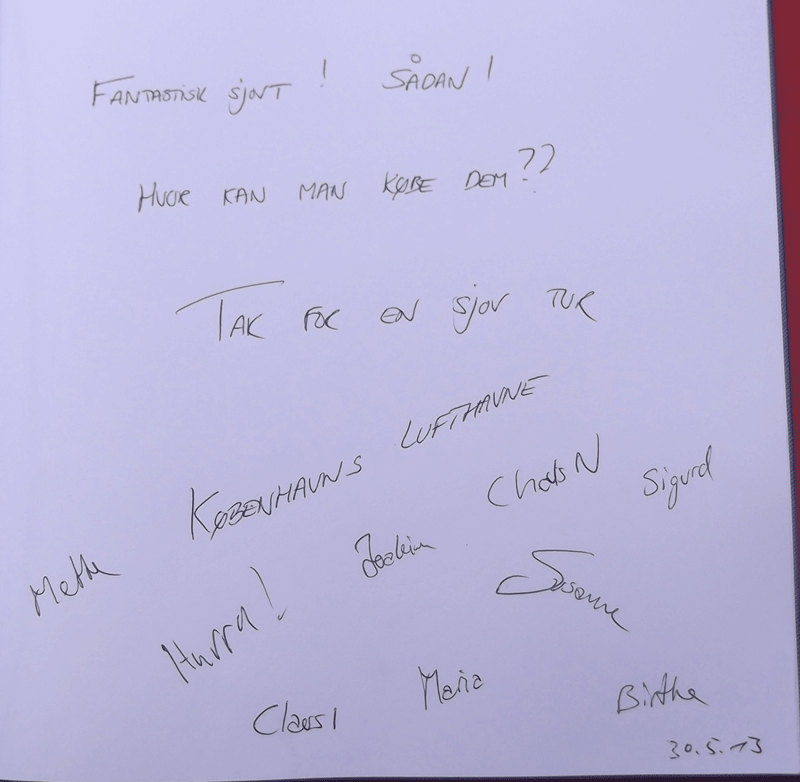 FANTASTISK SJOVT! SÅDAN!
HVOR KAN MAN KØBE DEM??
TAK FOR EN SJOV TUR
KØBENHAVNS LUFTHAVNE
Mette
Joakim
Sigurd
Hurra!
Susanne
Claus
Maria
Birthe
30.5.13